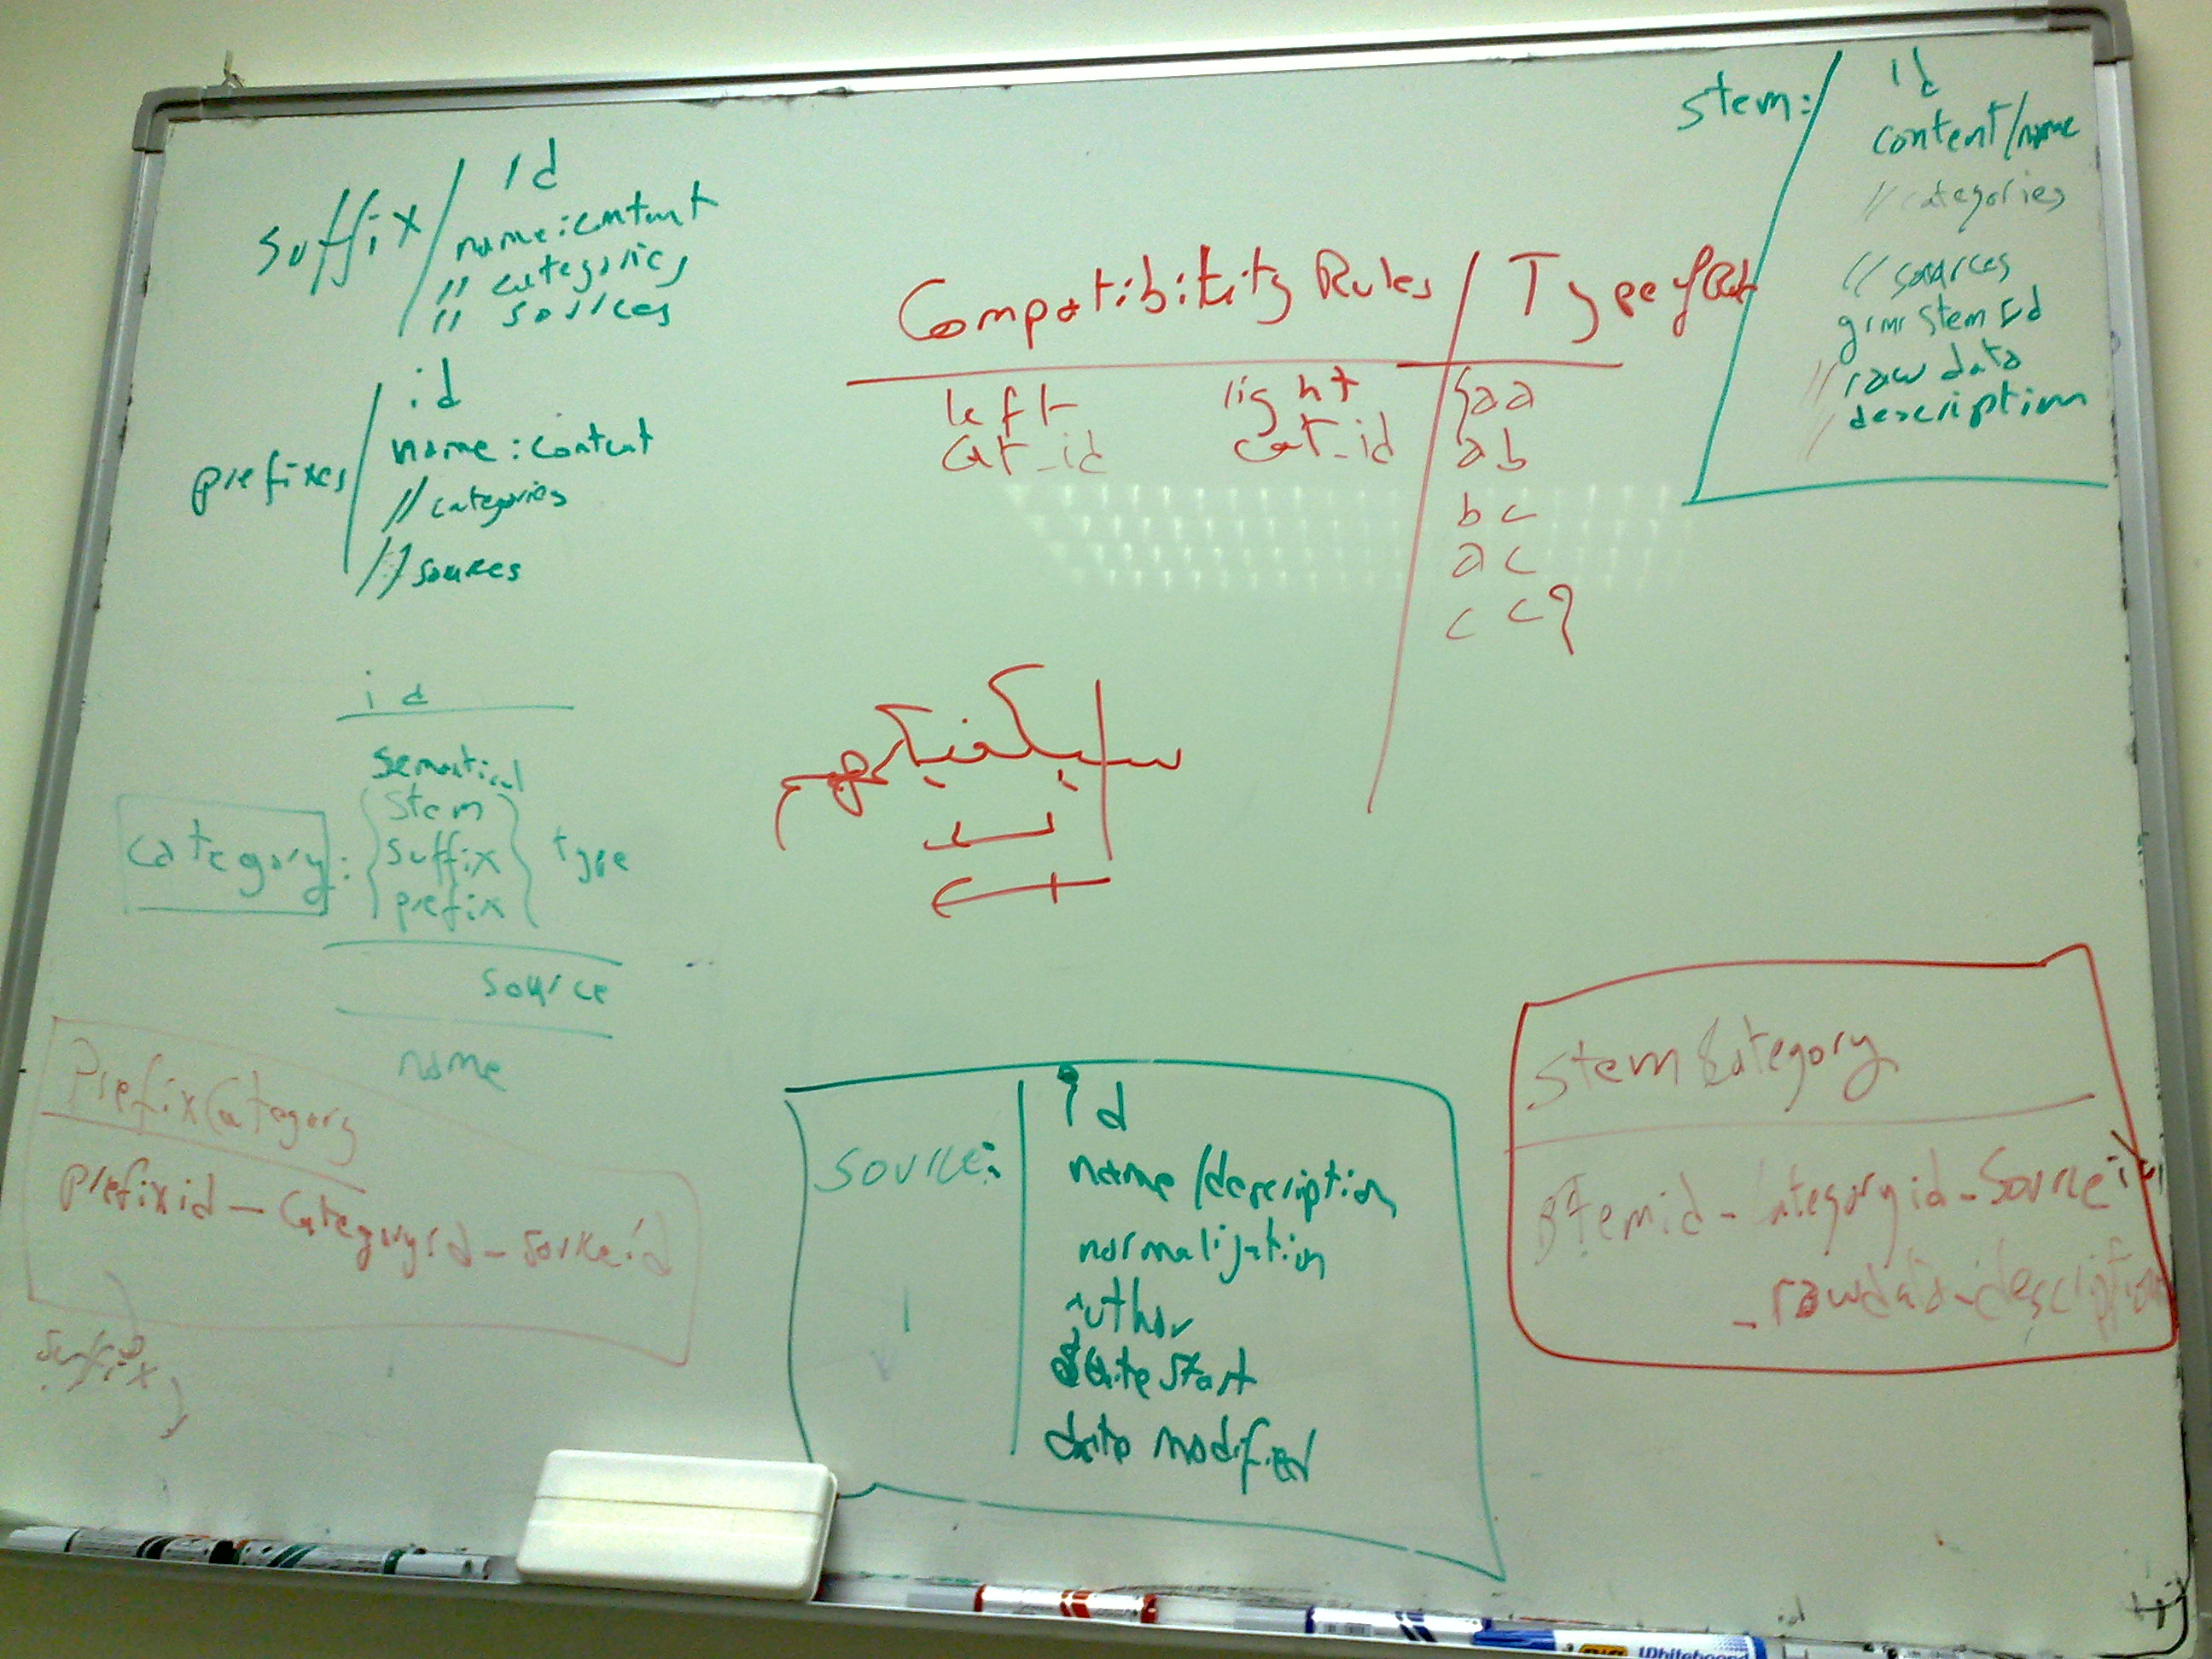 suffix
id
name:content
// categories
// sources
prefixes
id
name:content
// categories
// sources
Compatibility Rules
left right
cat_id cat_id
{aa
ab
bc
ac
cc}
stem:
id
content/name
// categories
// sources
stem Id
// raw data
description
سيكفيكهم
id
semantical
category: {stem suffix prefix} type
source
name
PrefixCategory
prefixid - Categoryid - sourceid
suffix
source:
id
name/description
normalization
author
date start
date modified
Stem Category
Stemid - Categoryid - Source id
- rawdata - description
Whiteboard